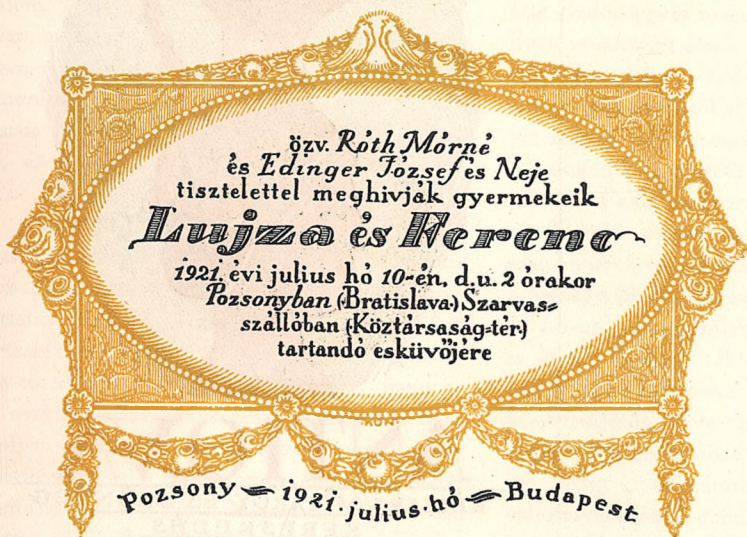 özv. Róth Mórné
és Edinger József és Neje
tisztelettel meghivják gyermekeik
Lujza és Ferenc
1921. évi julius hó 10-én, d.u. 2 órakor
Pozsonyban (Bratislava) Szarvas=
szállóban (Köztársaság=tér)
tartandó esküvőjére
Pozsony = 1921. julius. hó = Budapest